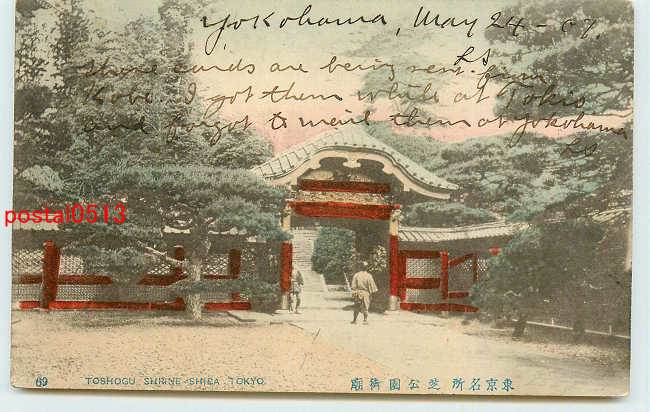 Yokohama, May 24-07.
LS
These cards are being sent from
Kobe. I got them while at Tokio
and forgot to mail them at Yokohama
LS
postal0513
69 TOSHOGU SHRINE SHIBA TOKYO. 東京名所 芝公園御廟